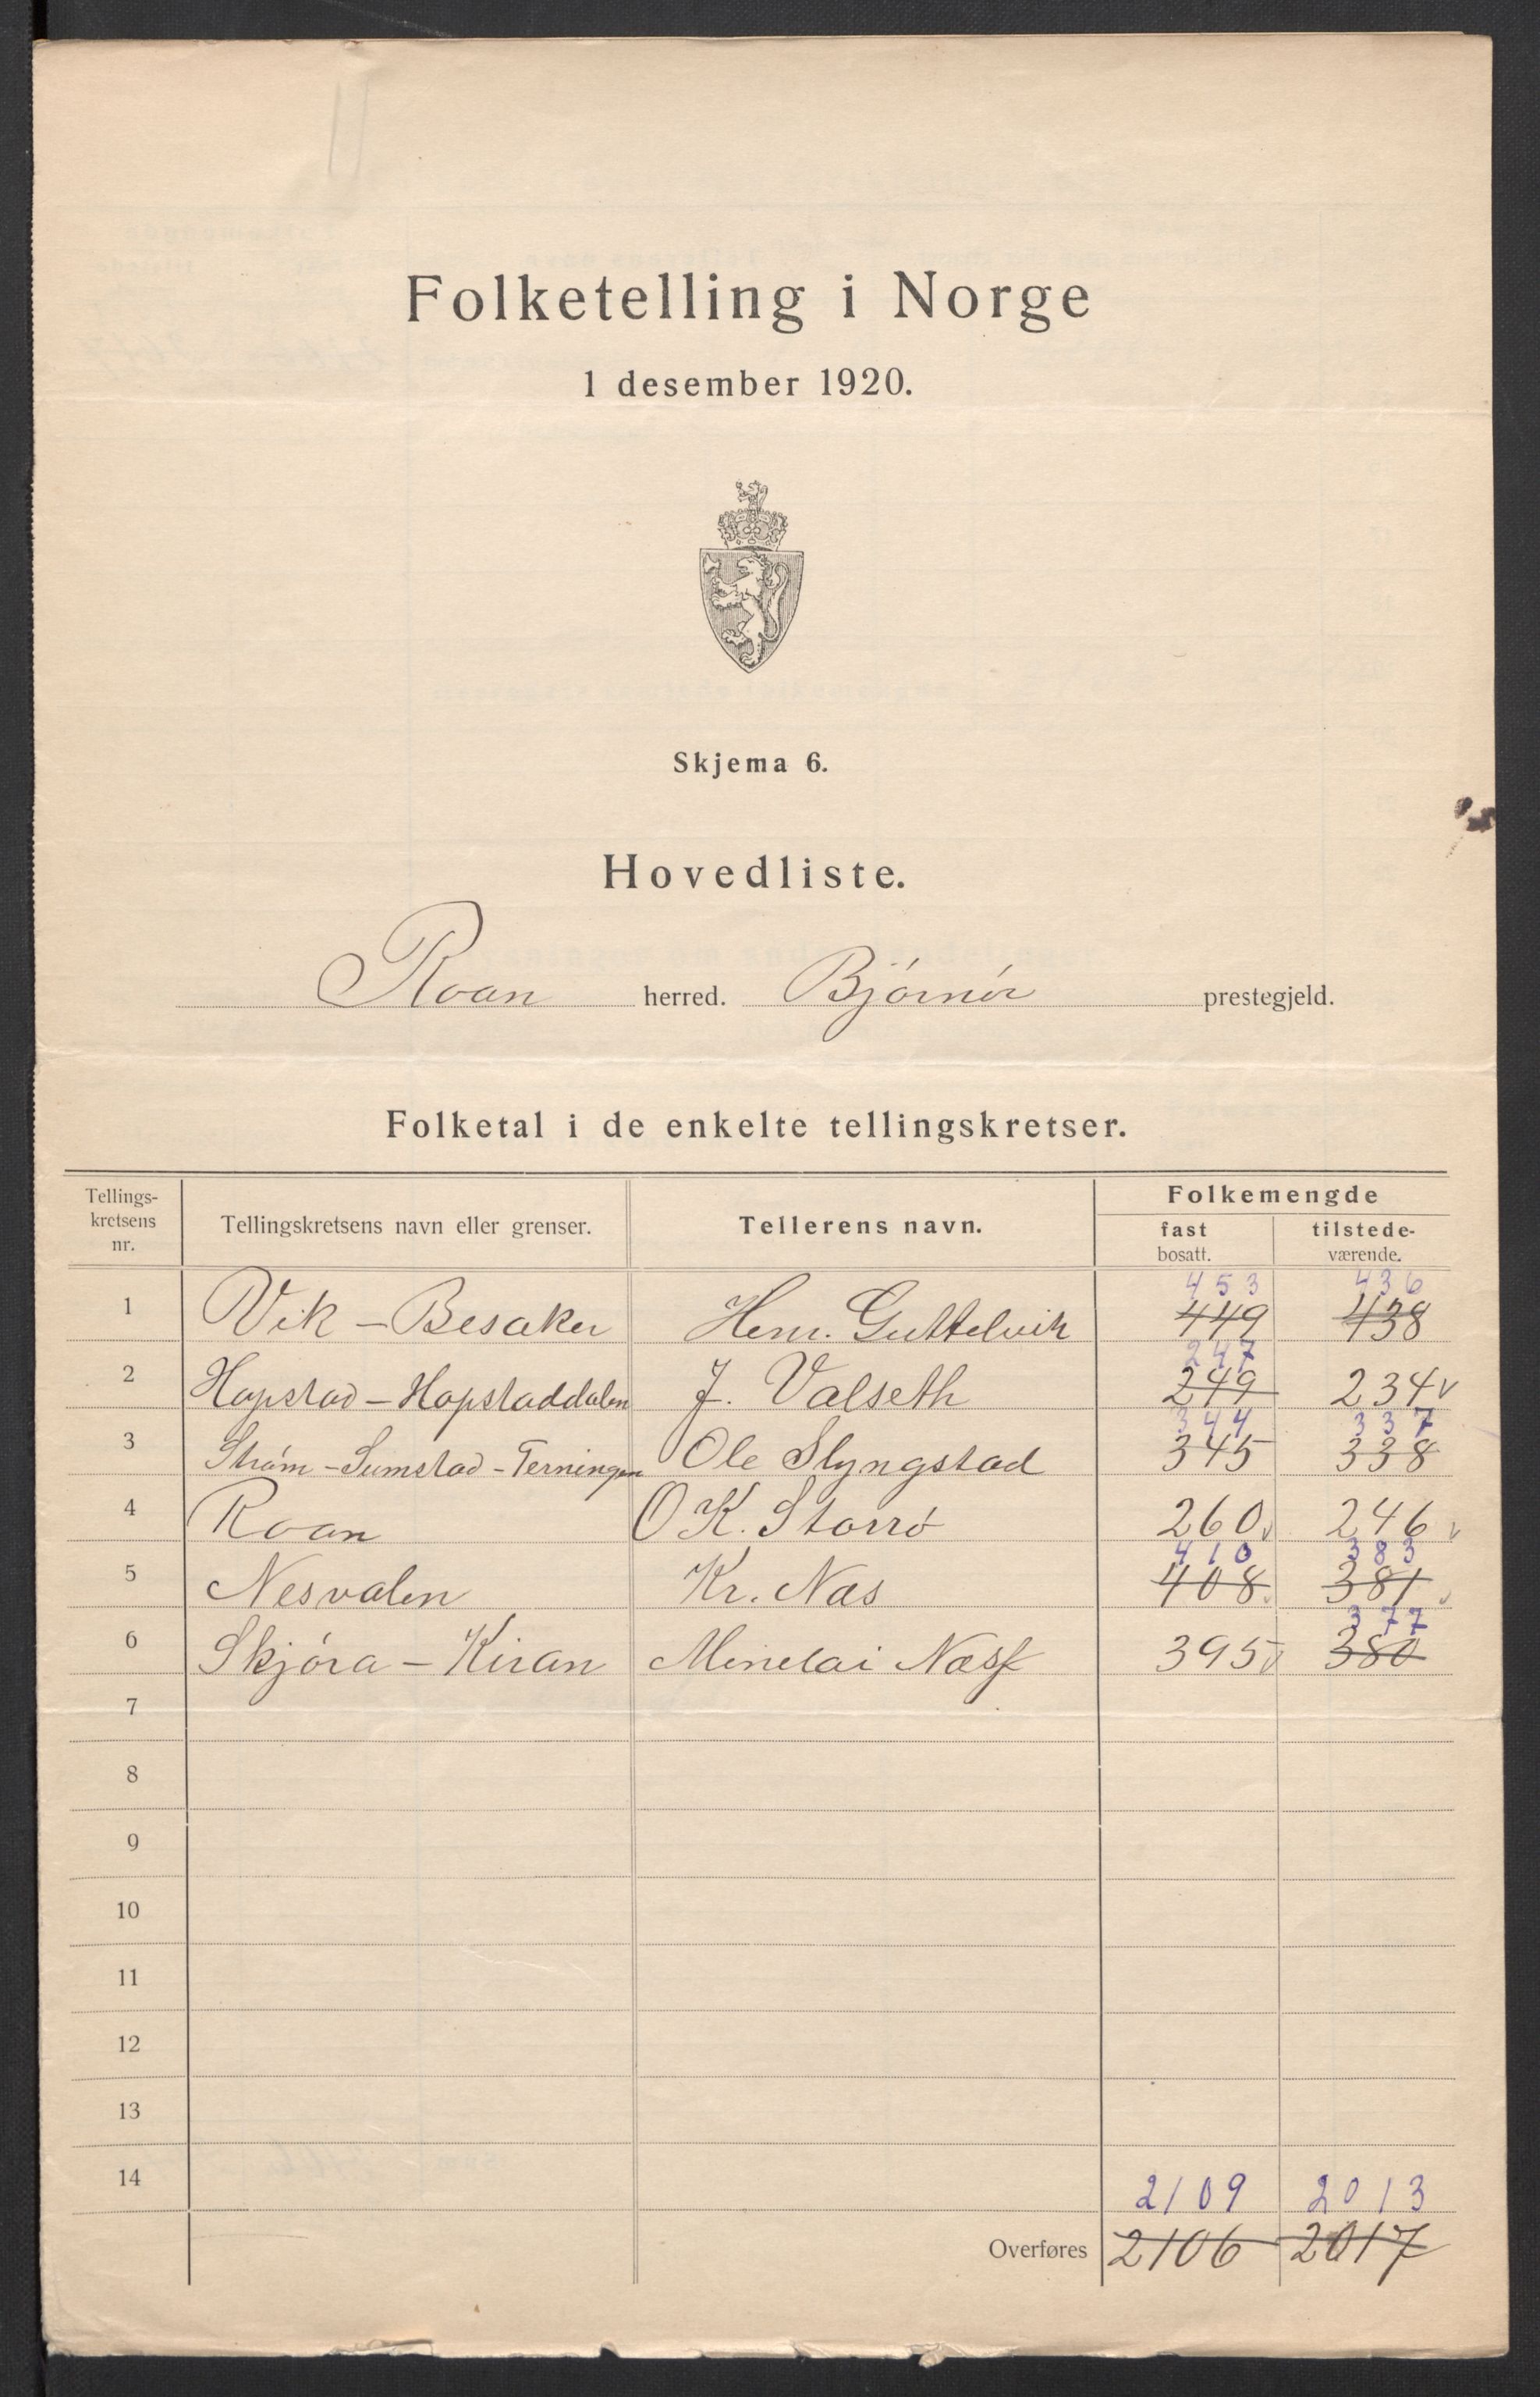 Folketelling i Norge
1 desember 1920.
Skjema 6.
Hovedliste.
Roan herred. Bjørnør prestegjeld.
Folketal i de enkelte tellingskretser.
Tellings-
kretsens
nr.
Tellingskretsens navn eller grenser.
Tellerens navn.
Folkemengde
fast
bosatt.
tilstede-
værende.
453 436
1 Vik - Besaker Henr. Guttelvik 449 438
247
2 Hopstad - Hopstaddalen J. Valseth 249 234 v
344 337
3 Strøm - Sumstad - Terningen Ole Slyngstad 345 338
4 Roan O K. Storrø 260 v 246 v
410 383
5 Nesvalen Kr. Næs 408 v 381 v
377
6 Skjøra - Kiran Menelai Næss 395 v 380
7
8
9
10
11
12
13
14
2109 2013
Overføres 2106 2017